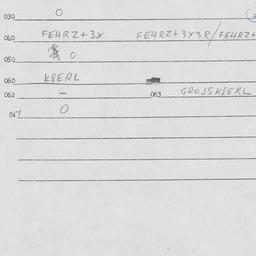 030 O
040 FE4RZ+3X FE4RZ+3X3R/FE4RZ+
050 O
060 KSERL
062 – 063 GROJSKSERL
067 O